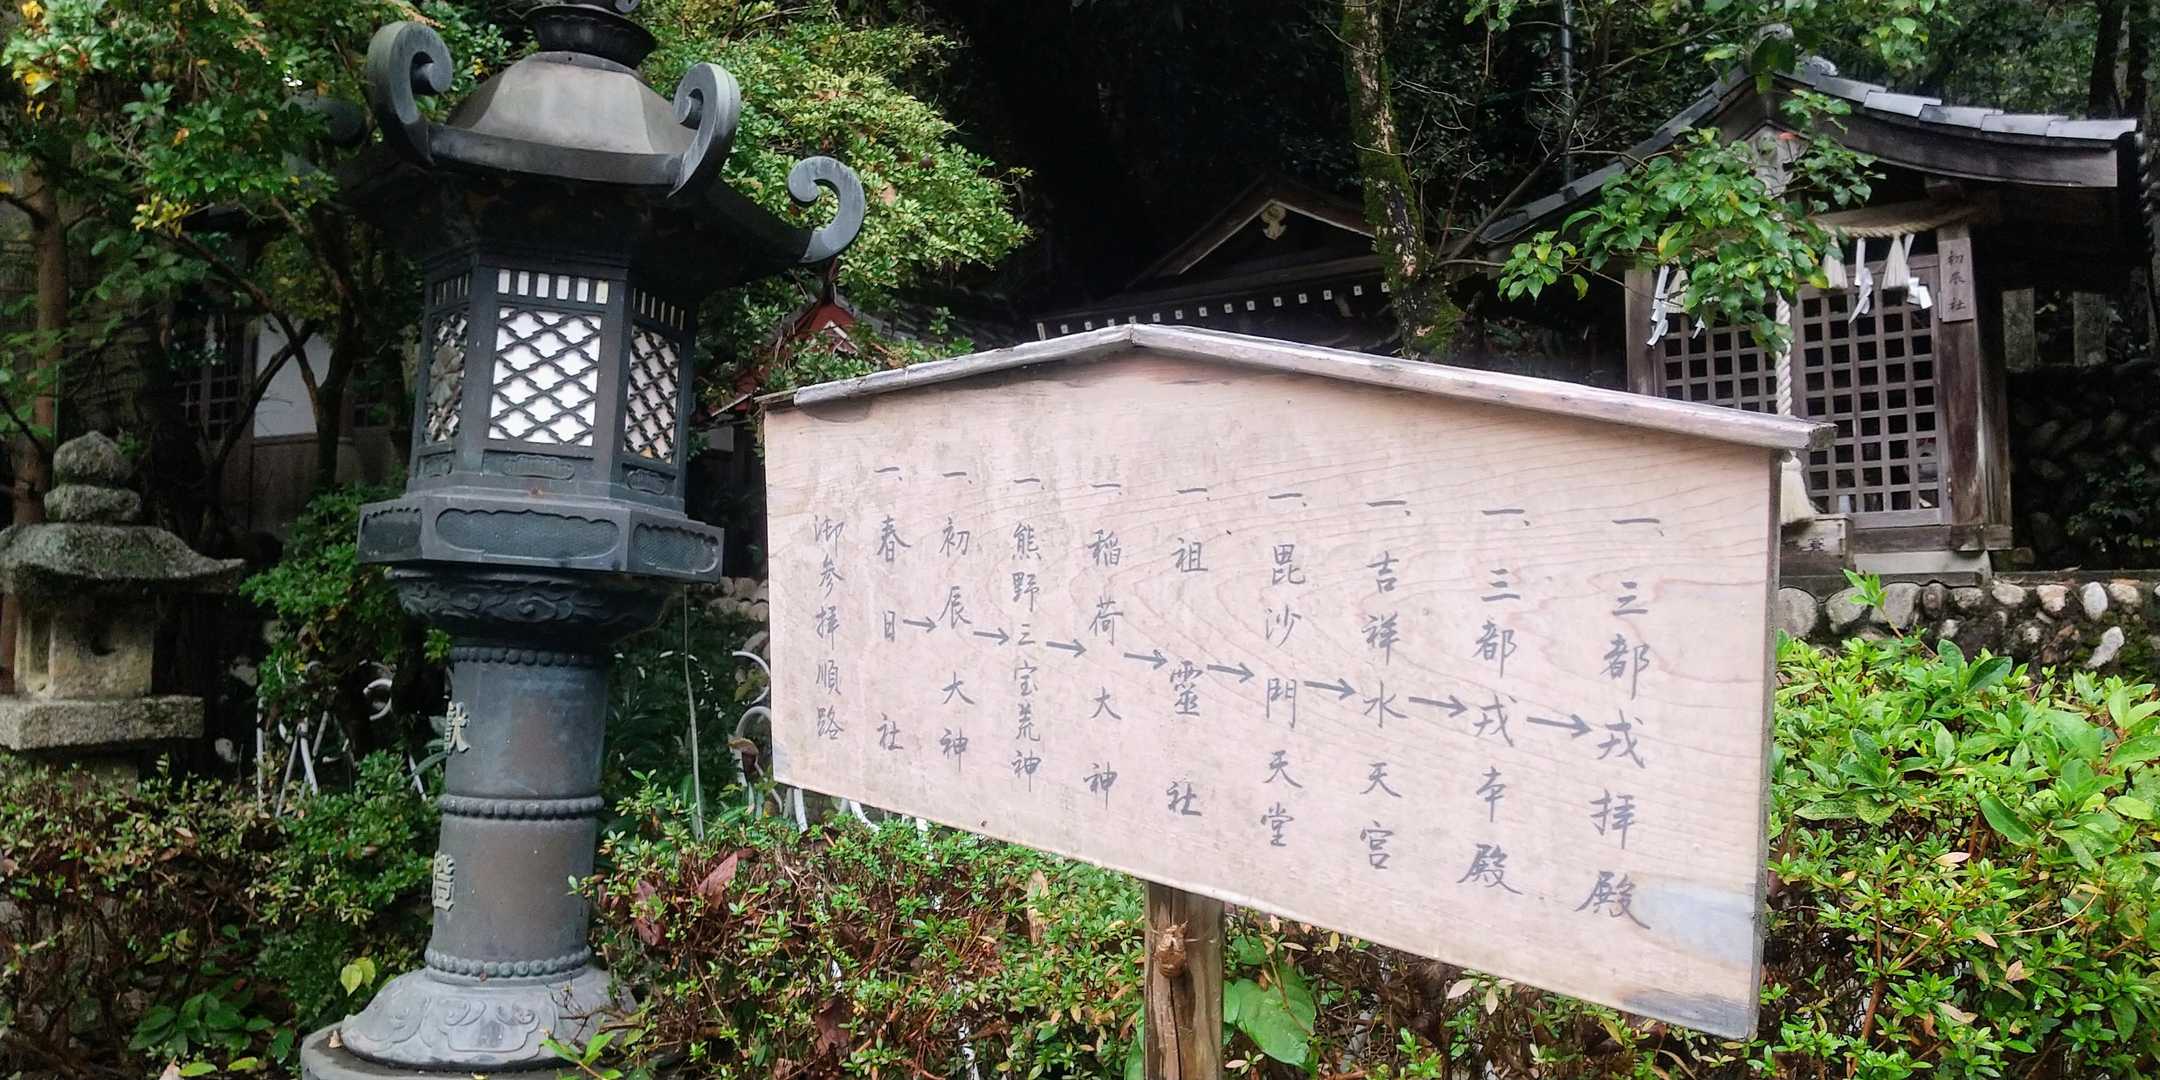 御参拝順路
一、春日社→
一、初辰大神→
一、熊野三宝荒神→
一、稲荷大神→
一、祖霊社→
一、毘沙門天堂→
一、吉祥水天宮→
一、三都戎本殿→
一、三都戎拝殿
初辰社
献